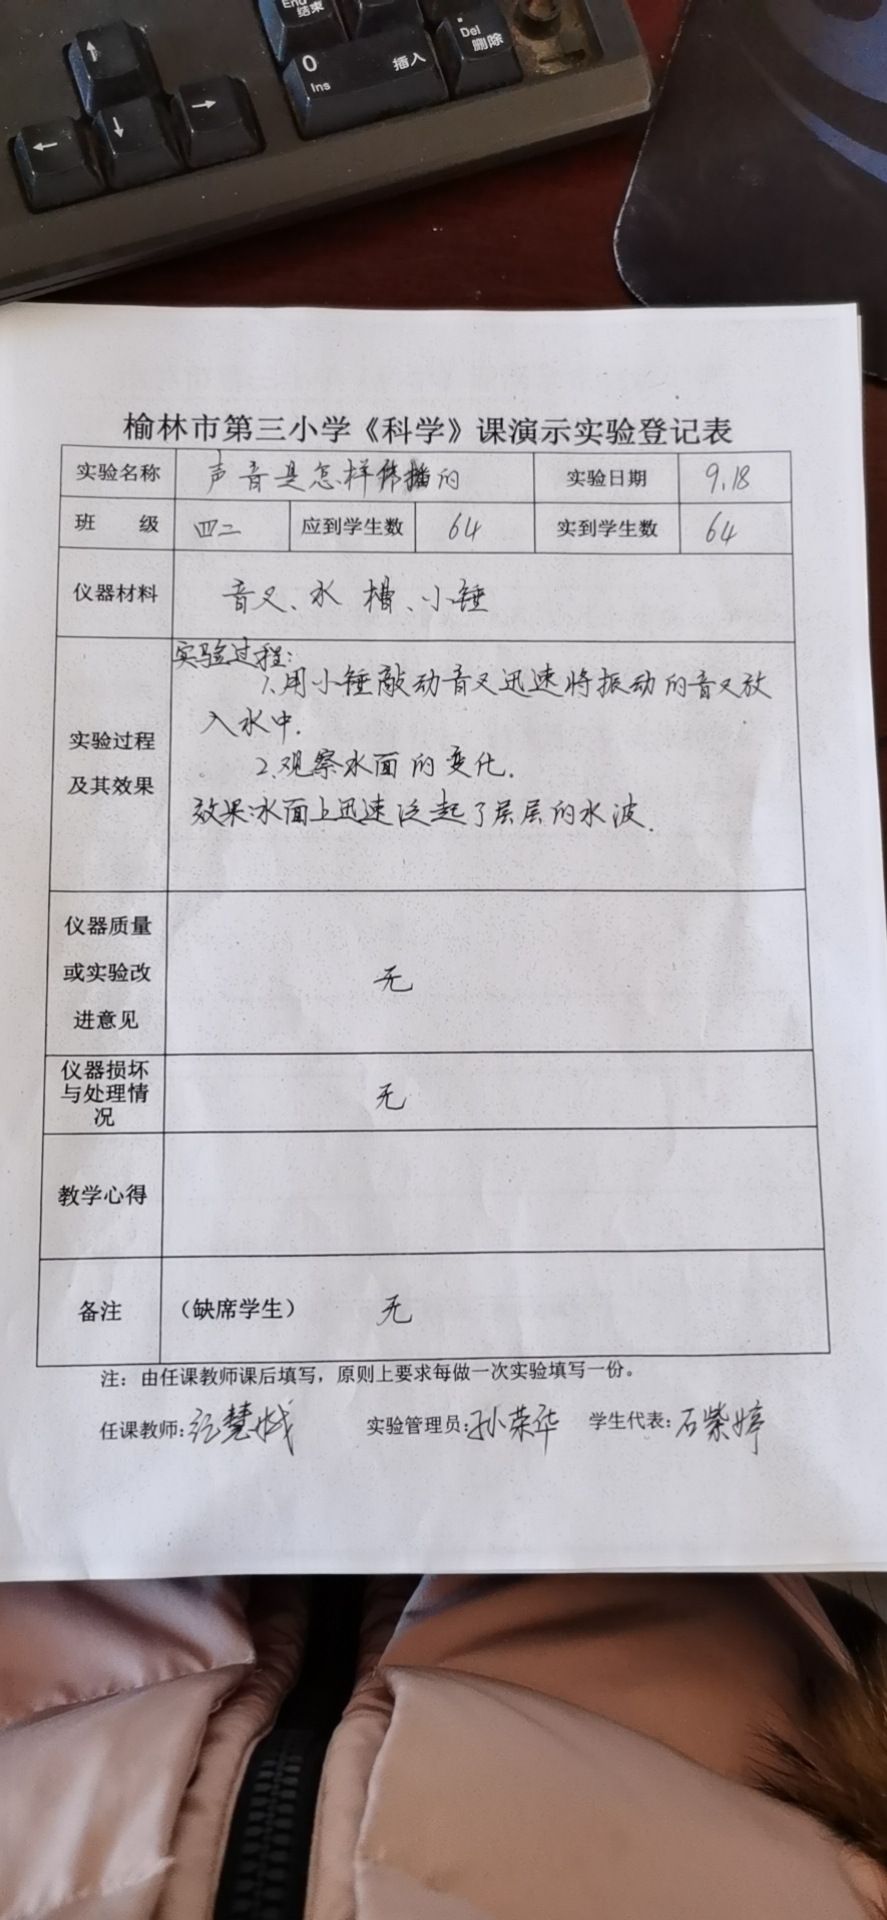 End
结束
Del
删除
0
Ins
插入
榆林市第三小学《科学》课演示实验登记表
实验名称 声音是怎样传播的 实验日期 9.18
班 级 四二 应到学生数 64 实到学生数 64
仪器材料 音叉、水 槽、小锤
实验过程:
1.用小锤敲动音叉迅速将振动的音叉放
入水中.
实验过程
及其效果
2.观察水面的变化.
效果:水面上迅速泛起了层层的水波.
仪器质量
或实验改
进意见
无
仪器损坏
与处理情
况
无
教学心得
备注 (缺席学生) 无
注：由任课教师课后填写，原则上要求每做一次实验填写一份。
任课教师: 实验管理员:孙荣华 学生代表:石紫婷